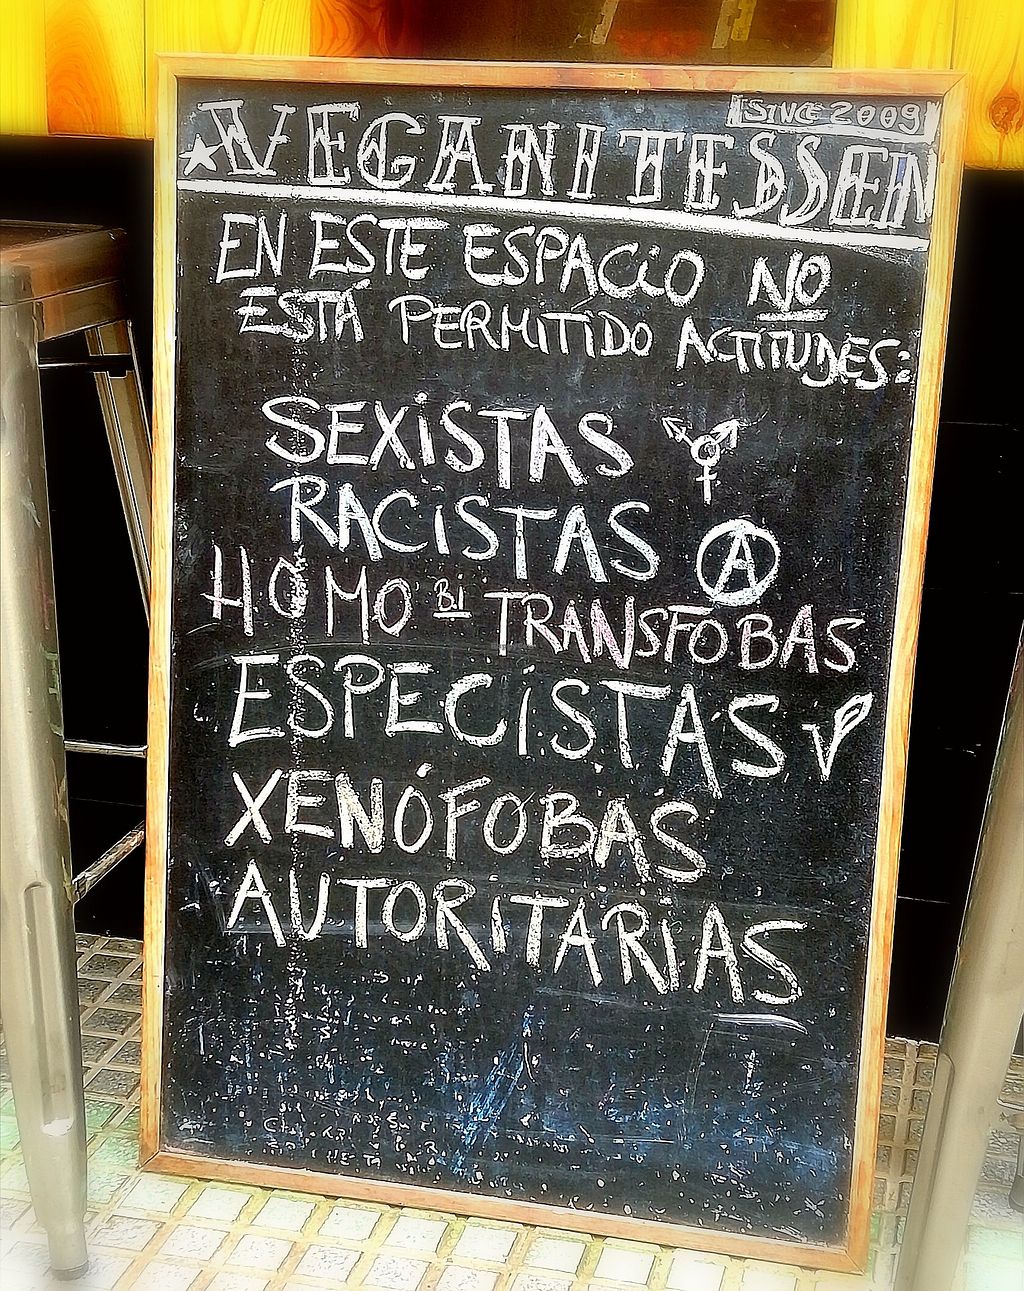 SINCE 2009
VEGANITESSEN
EN ESTE ESPACIO NO
ESTÁ PERMITÍDO ACTITUDES:
SEXISTAS
RACISTAS
HOMO BI TRANSFOBAS
ESPECISTAS
XENÓFOBAS
AUTORITARIAS